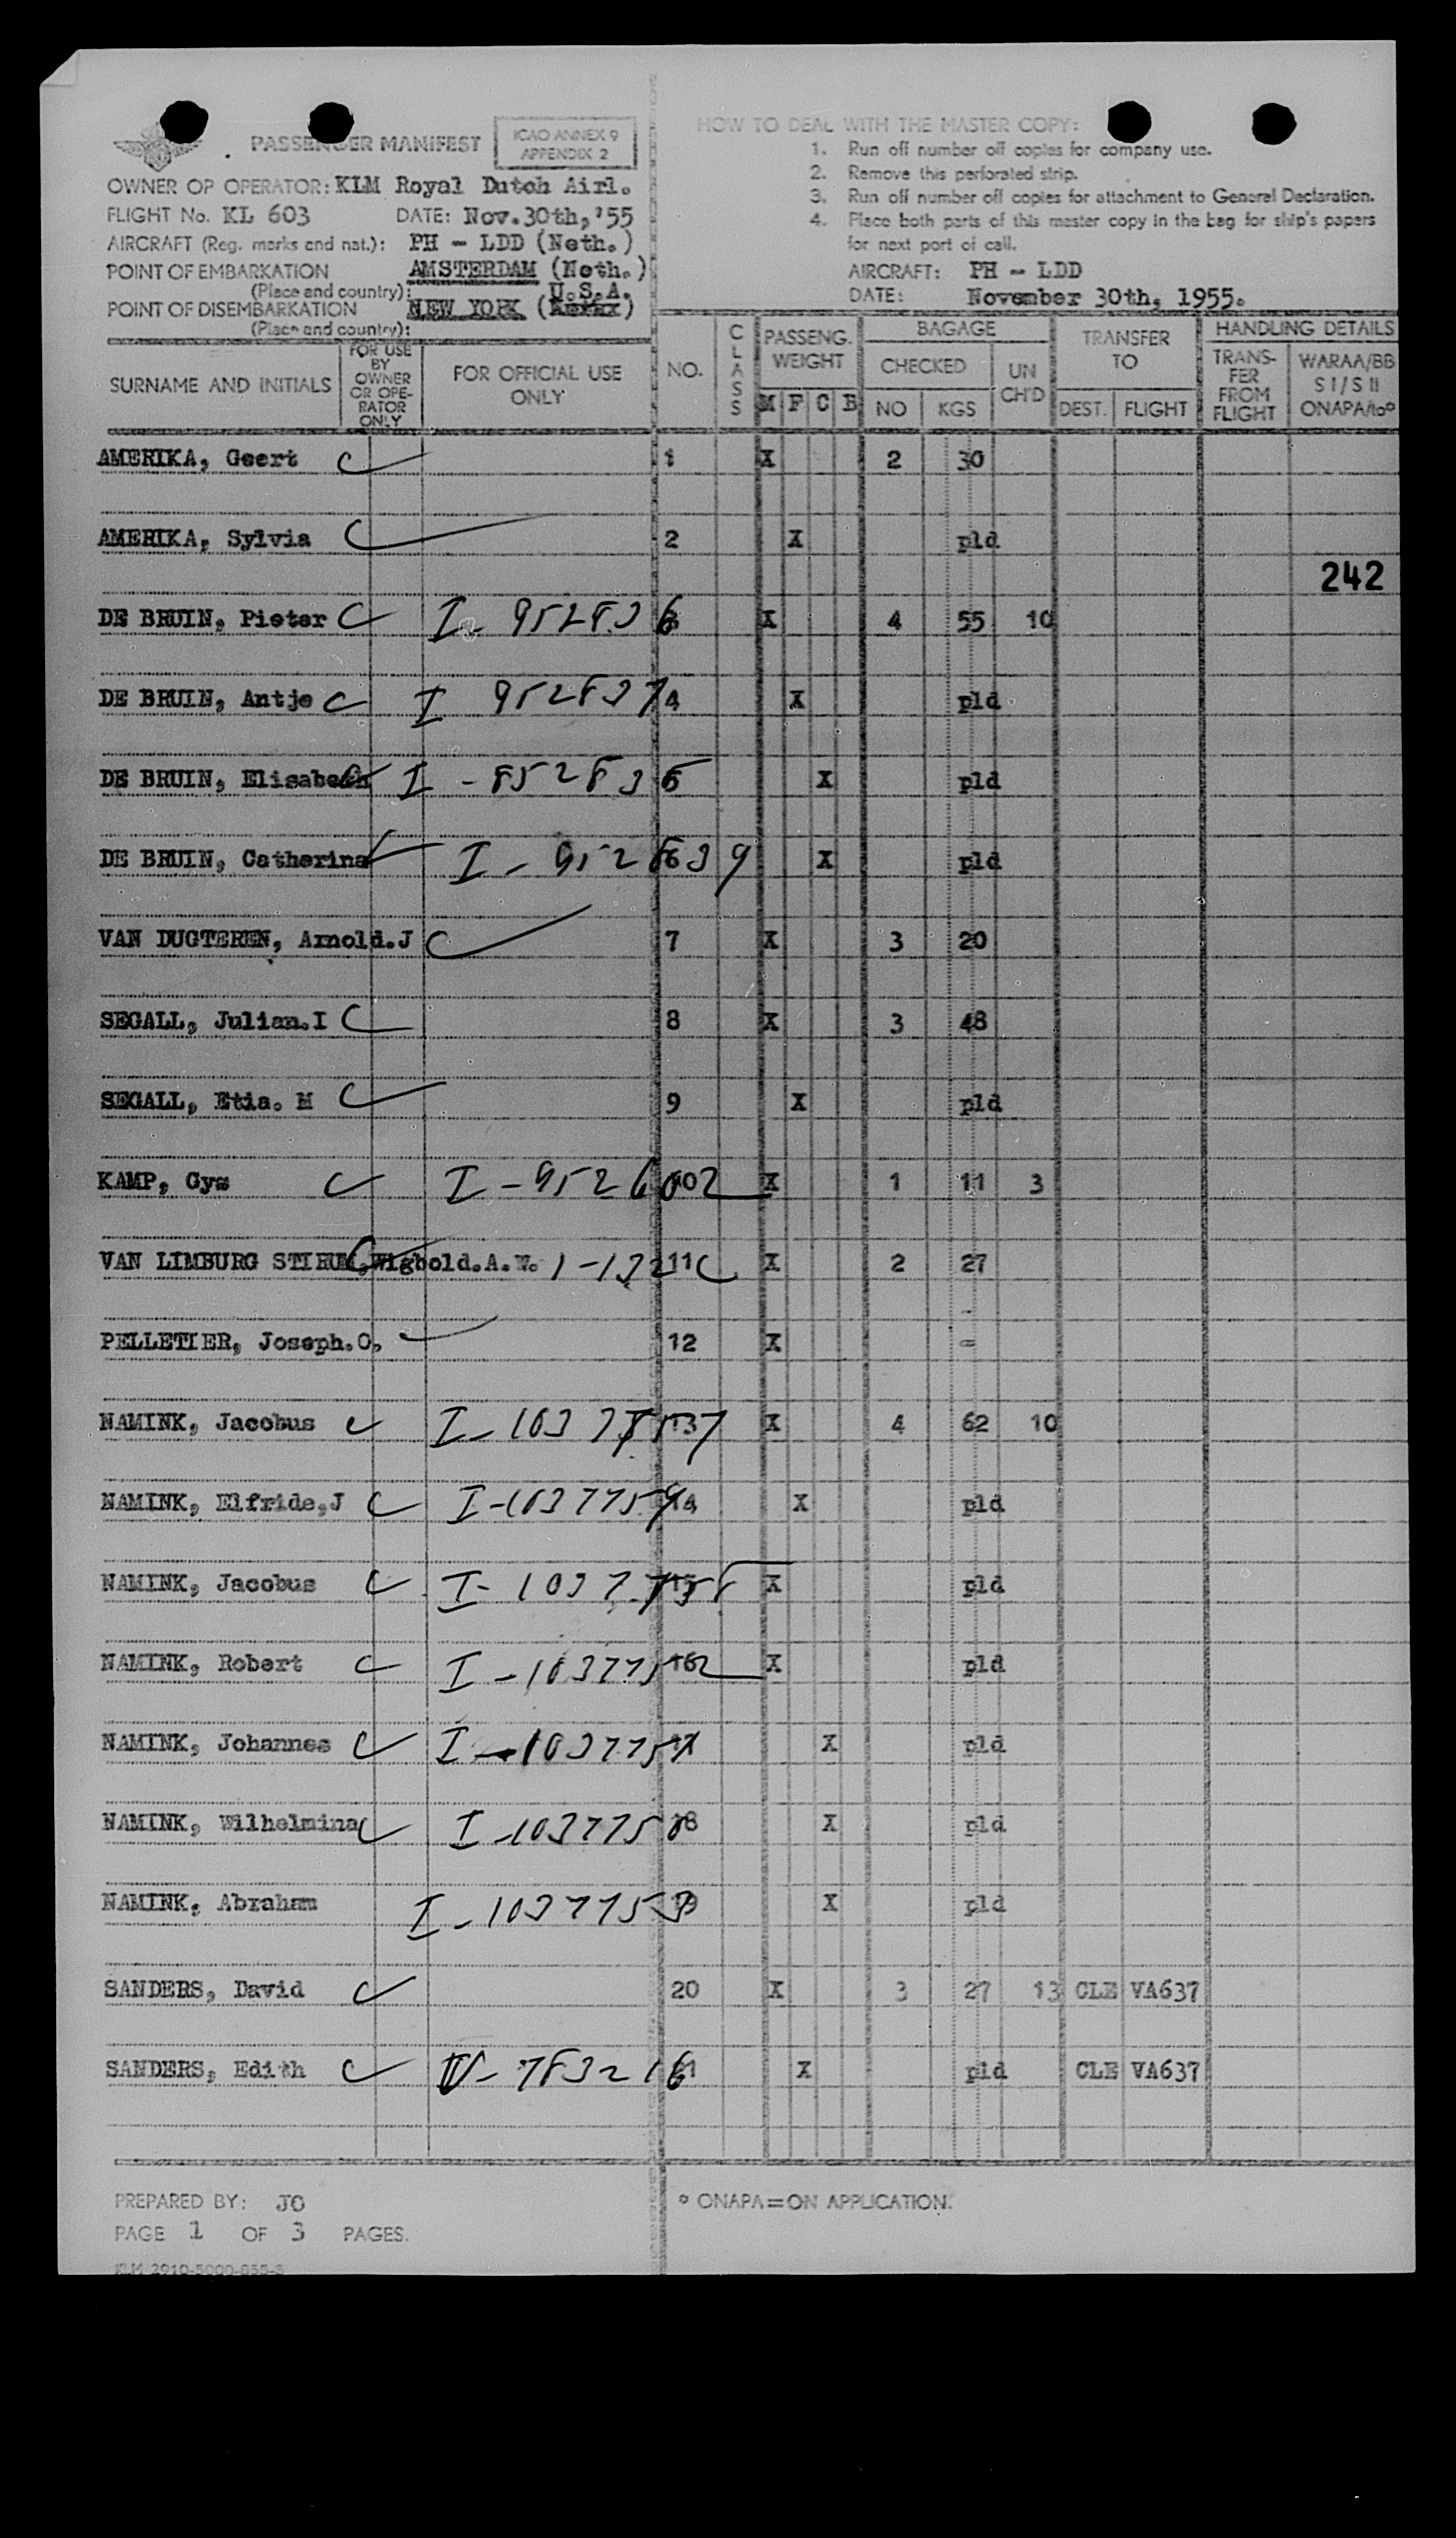 PASSENGER MANIFEST
ICAO ANNEX 9
APPENDIX 2
OWNER OP OPERATOR: KLM Royal Dutch Airl.
FLIGHT No. KL 603 DATE: Nov.30th,'55
AIRCRAFT (Reg. marks and nat.): PH - LDD (Neth.)
POINT OF EMBARKATION AMSTERDAM (Neth.)
(Place and country): U.S.A.
POINT OF DISEMBARKATION NEW YORK
(Place and country):
HOW TO DEAL WITH THE MASTER COPY:
1. Run off number off copies for company use.
2. Remove this perforated strip.
3. Run off number off copies for attachment to General Declaration.
4. Place both parts of this master copy in the bag for ship's papers
for next port of call.
AIRCRAFT: PH - LDD
DATE: November 30th, 1955.
SURNAME AND INITIALS
FOR USE BY OWNER OR OPE-RATOR ONLY
FOR OFFICIAL USE ONLY
NO.
CLASS
PASSENG. WEIGHT
M F C B
BAGAGE
CHECKED
NO KGS
UN CH'D
TRANSFER TO
DEST. FLIGHT
HANDLING DETAILS
TRANS-FER FROM FLIGHT
WARAA/BB S I/S II ONAPA/to°
AMERIKA, Geert 1 X 2 30
AMERIKA, Sylvia 2 X pld
242
DE BRUIN, Pieter I-952836 X 4 55 10
DE BRUIN, Antje I 952837 4 X pld
DE BRUIN, Elisabeth I - X pld
DE BRUIN, Catherina I - X pld
VAN DUGTEREN, Arnold.J 7 X 3 20
SEGALL, Julian.I 8 X 3 48
SEGALL, Etia. M 9 X pld
KAMP, Gys I - X 1 11 3
VAN LIMBURG STIRUM, Wigbold.A.W. 11 X 2 27
PELLETIER, Joseph.O. 12 X -
NAMINK, Jacobus I- X 4 62 10
NAMINK, Elfride,J I-1037754 14 X pld
NAMINK, Jacobus I- X pld
NAMINK, Robert I - X pld
NAMINK, Johannes I - X pld
NAMINK, Wilhelmina I - 18 X pld
NAMINK, Abraham I - 1037753 X pld
SANDERS, David 20 X 3 27 13 CLE VA637
SANDERS, Edith V- 783216 X pld CLE VA637
PREPARED BY: JO
PAGE 1 OF 3 PAGES.
° ONAPA=ON APPLICATION.